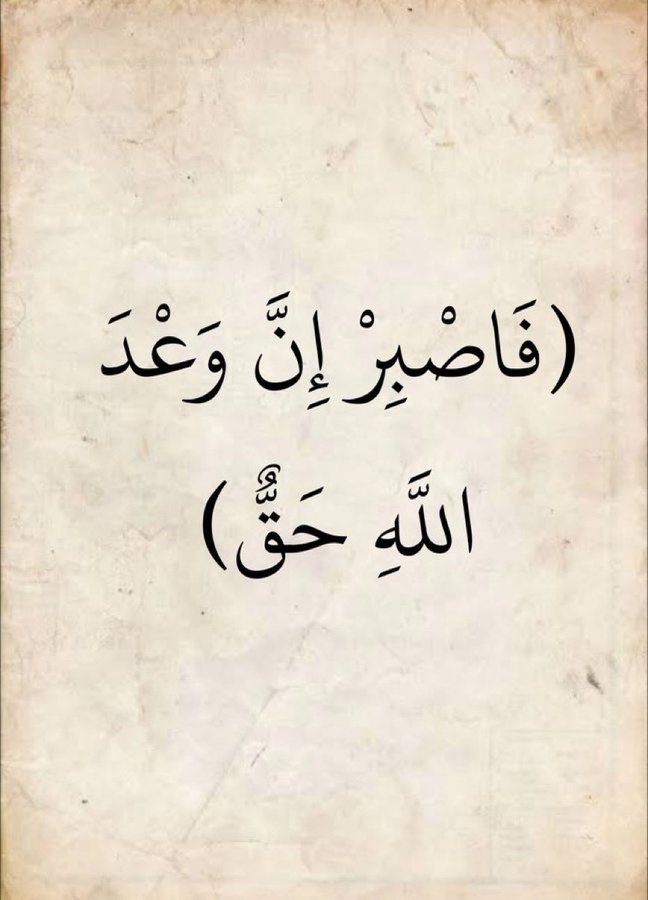 (فَاصْبِرْ إِنَّ وَعْدَ
اللَّهِ حَقٌّ)